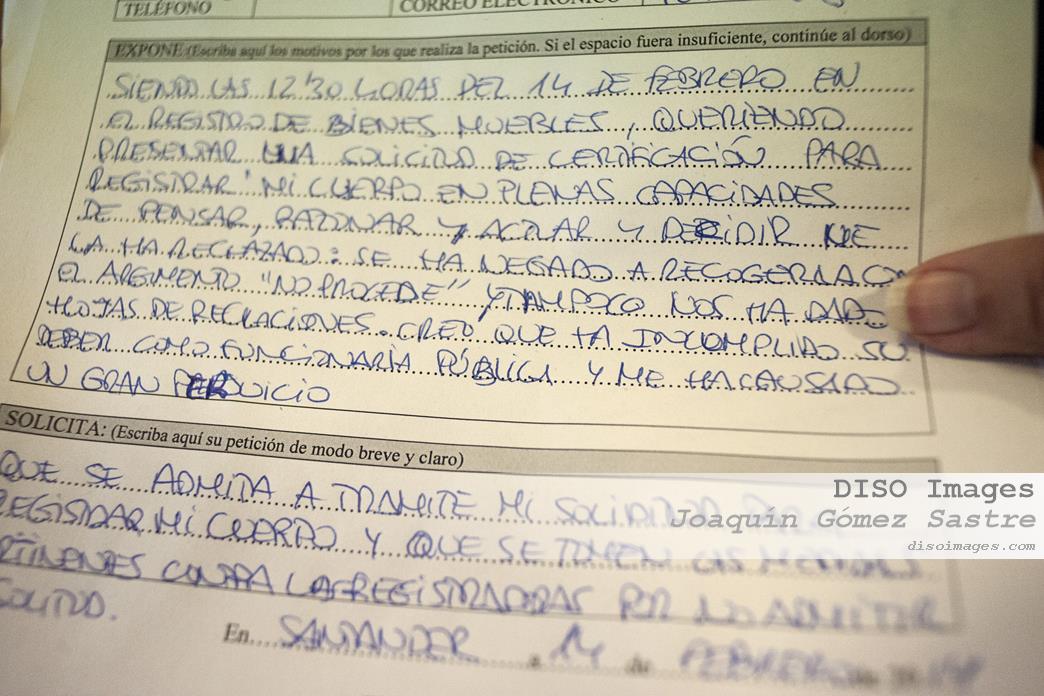 TELÉFONO CORREO ELECTRÓNICO
EXPONE (Escriba aquí los motivos por los que realiza la petición. Si el espacio fuera insuficiente, continúe al dorso)
SIENDO LAS 12'30 HORAS DEL 14 DE FEBRERO EN
EL REGISTRO DE BIENES MUEBLES, QUERIENDO
PRESENTAR UNA SOLICITUD DE CERTIFICACIÓN PARA
REGISTRAR MI CUERPO EN PLENAS CAPACIDADES
DE PENSAR, RAZONAR Y ACTUAR Y DECIDIR ME
LA HA RECHAZADO: SE HA NEGADO A RECOGERLA CON
EL ARGUMENTO "NO PROCEDE" Y TAMPOCO NOS HA DADO
HOJAS DE RECLACIONES. CREO QUE HA INCUMPLIDO SU
DEBER COMO FUNCIONARIA PÚBLICA Y ME HA CAUSADO
UN GRAN PERJUICIO
SOLICITA: (Escriba aquí su petición de modo breve y claro)
QUE SE ADMITA A TRAMITE MI SOLICITUD
REGISTRAR MI CUERPO Y QUE SE TOMEN LAS MEDIDAS
PERTINENTES CONTRA LAS REGISTRADORAS POR NO ADMITIR
SOLICITUD.
En SANTANDER a 14 de FEBRERO
DISO Images
Joaquín Gómez Sastre
disoimages.com